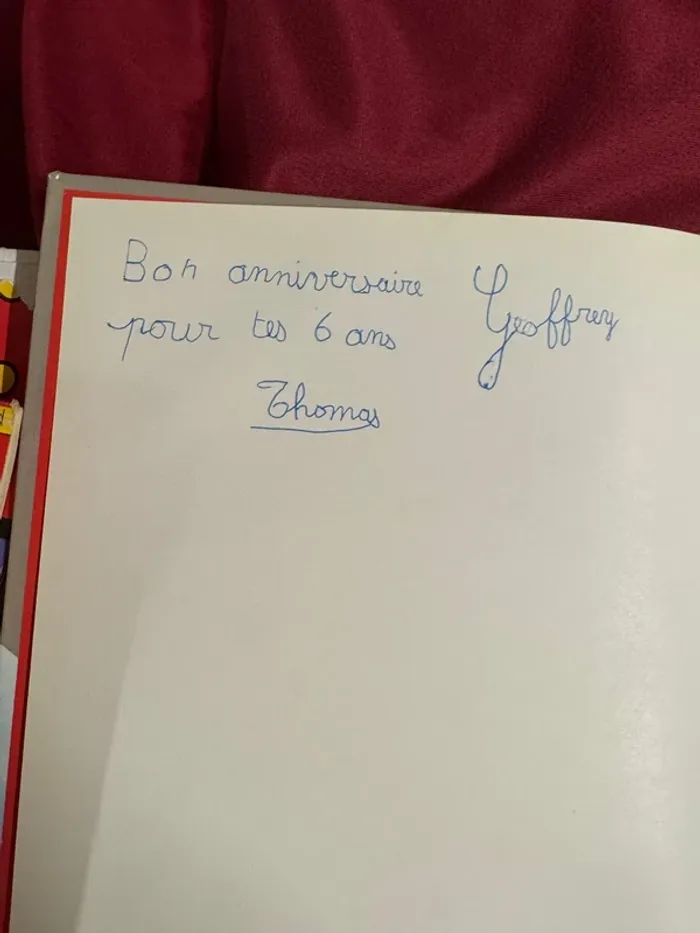 Bon anniversaire Geoffrey
pour tes 6 ans
Thomas